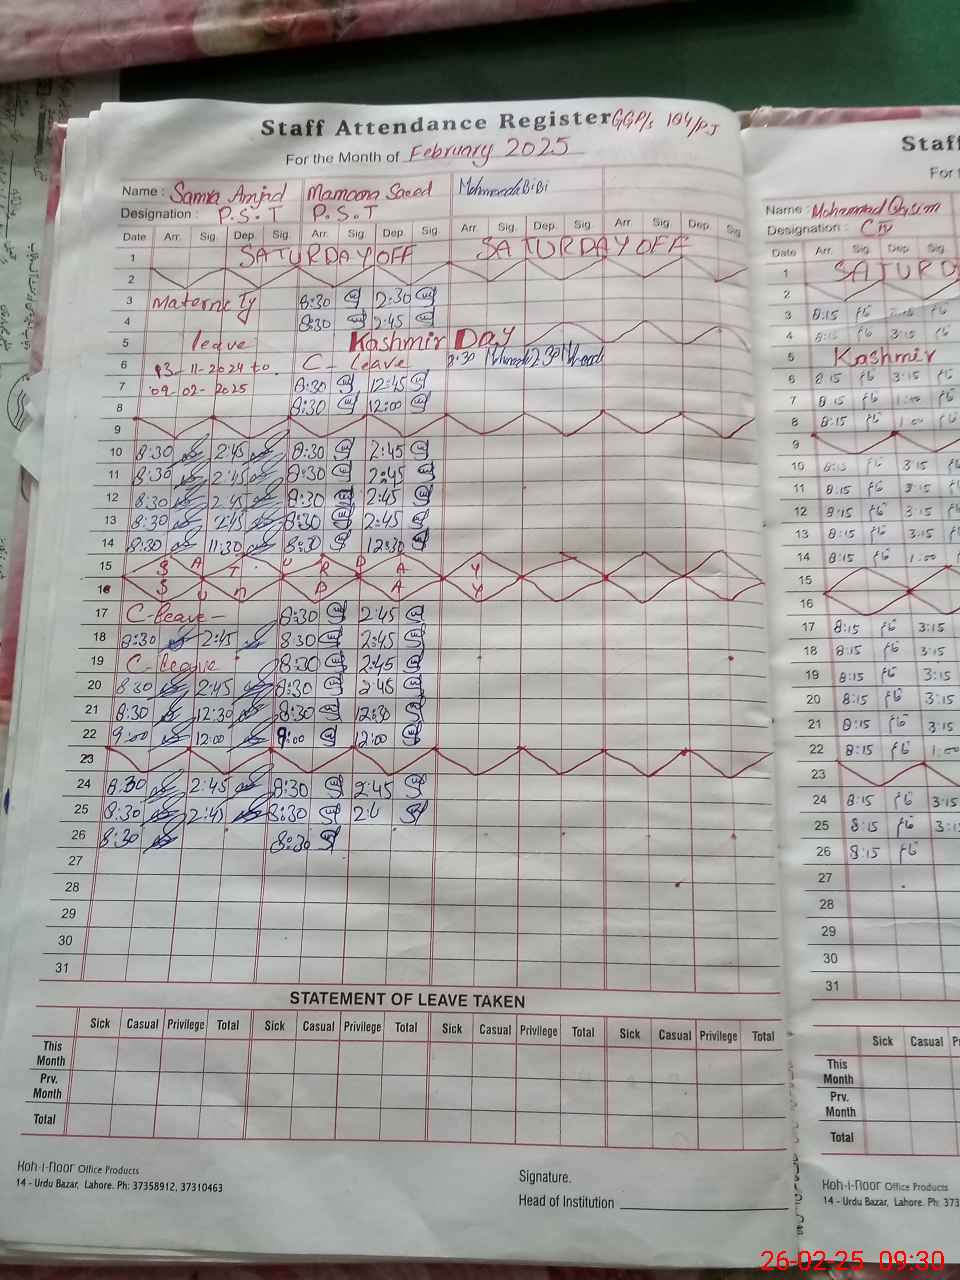 Staff Attendance Register GGP/s 104/PJ
For the Month of February 2025
Name : Samra Amjad Mamoona Saeed BiBi
Designation : P.S.T P.S.T
Date Arr. Sig. Dep. Sig. Arr. Sig. Dep. Sig. Arr. Sig. Dep. Sig. Arr. Sig. Dep. Sig.
1 SATURDAY OFF SATURDAY OFF
2
3 Maternity 8:30 2:30
4 8:30 2:45
5 leave Kashmir Day
6 13-11-2024 to C-leave 8:30 2:30
7 09-02-2025 8:30 12:45
8 8:30 12:00
9
10 8:30 2:45 8:30 2:45
11 8:30 2:45 8:30 2:45
12 8:30 2.45 8:30 2:45
13 8:30 2:45 8:30 2:45
14 8:30 11:30 8:30 12:30
15 S A T U R D A Y
16 S U n D A Y
17 C-leave- 8:30 2:45
18 8:30 2:45 8:30 2:45
19 C-leave 8:30 2:45
20 8:30 2:45 8:30 2:45
21 8:30 12:30 8:30 12:30
22 9:00 12:00 9:00 12:00
23
24 8:30 2:45 8:30 2:45
25 8:30 2:45 8:30
26 8:30 8:30
27
28
29
30
31
STATEMENT OF LEAVE TAKEN
Sick Casual Privilege Total Sick Casual Privilege Total Sick Casual Privilege Total Sick Casual Privilege Total
This Month
Prv. Month
Total
Koh-I-Noor Office Products
14 - Urdu Bazar, Lahore. Ph: 37358912, 37310463
Signature.
Head of Institution
Staf
For t
Name : Mohammad
Designation :
Date Arr. Sig. Dep. Sig.
1 SATURD
2
3 8:15
4 8:15 3:15
5 Kashmir
6 8:15 3:15
7 8:15 1:00
8 8:15 1:00
9
10 8:15 3:15
11 8:15 3:15
12 8:15 3:15
13 8:15 3:15
14 8:15 1:00
15
16
17 8:15 3:15
18 8:15 3:15
19 8:15 3:15
20 8:15 3:15
21 8:15 3:15
22 8:15 1:00
23
24 8:15 3:15
25 8:15 3:1
26 8:15
27
28
29
30
31
Sick Casual P
This Month
Prv. Month
Total
Koh-I-Noor Office Products
14 - Urdu Bazar, Lahore. Ph: 373
26-02-25 09:30